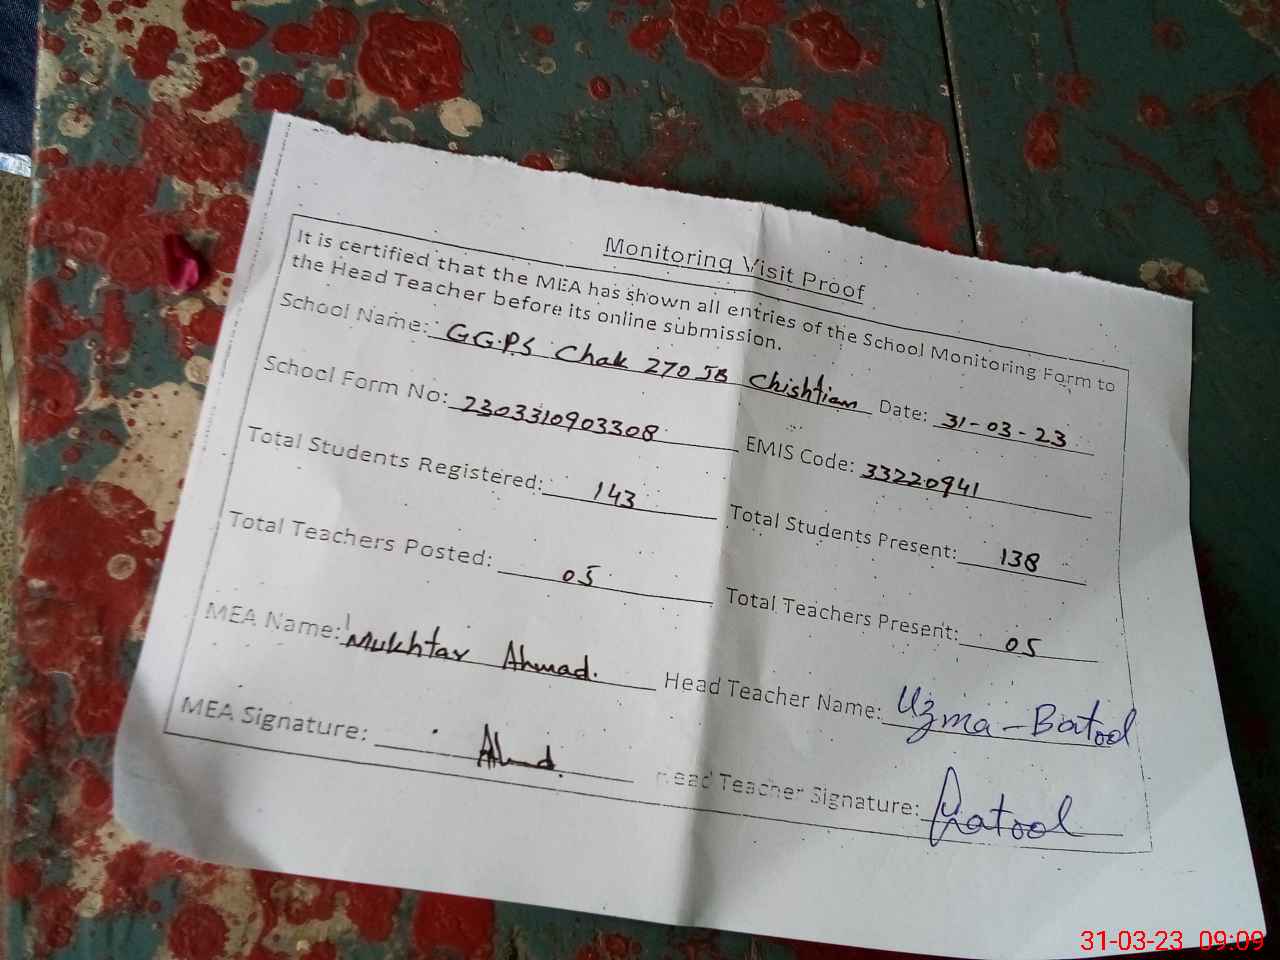 Monitoring Visit Proof
It is certified that the MEA has shown all entries of the School Monitoring Form to
the Head Teacher before its online submission.
School Name: GGPS Chak 270 JB Chishtian Date: 31-03-23
School Form No: 2303310903308 EMIS Code: 33220941
Total Students Registered: 143 Total Students Present: 138
Total Teachers Posted: 05 Total Teachers Present: 05
MEA Name: Mukhtar Ahmad. Head Teacher Name: Uzma - Batool
MEA Signature: Ahmd. Head Teacher Signature: Batool
31-03-23 09:09